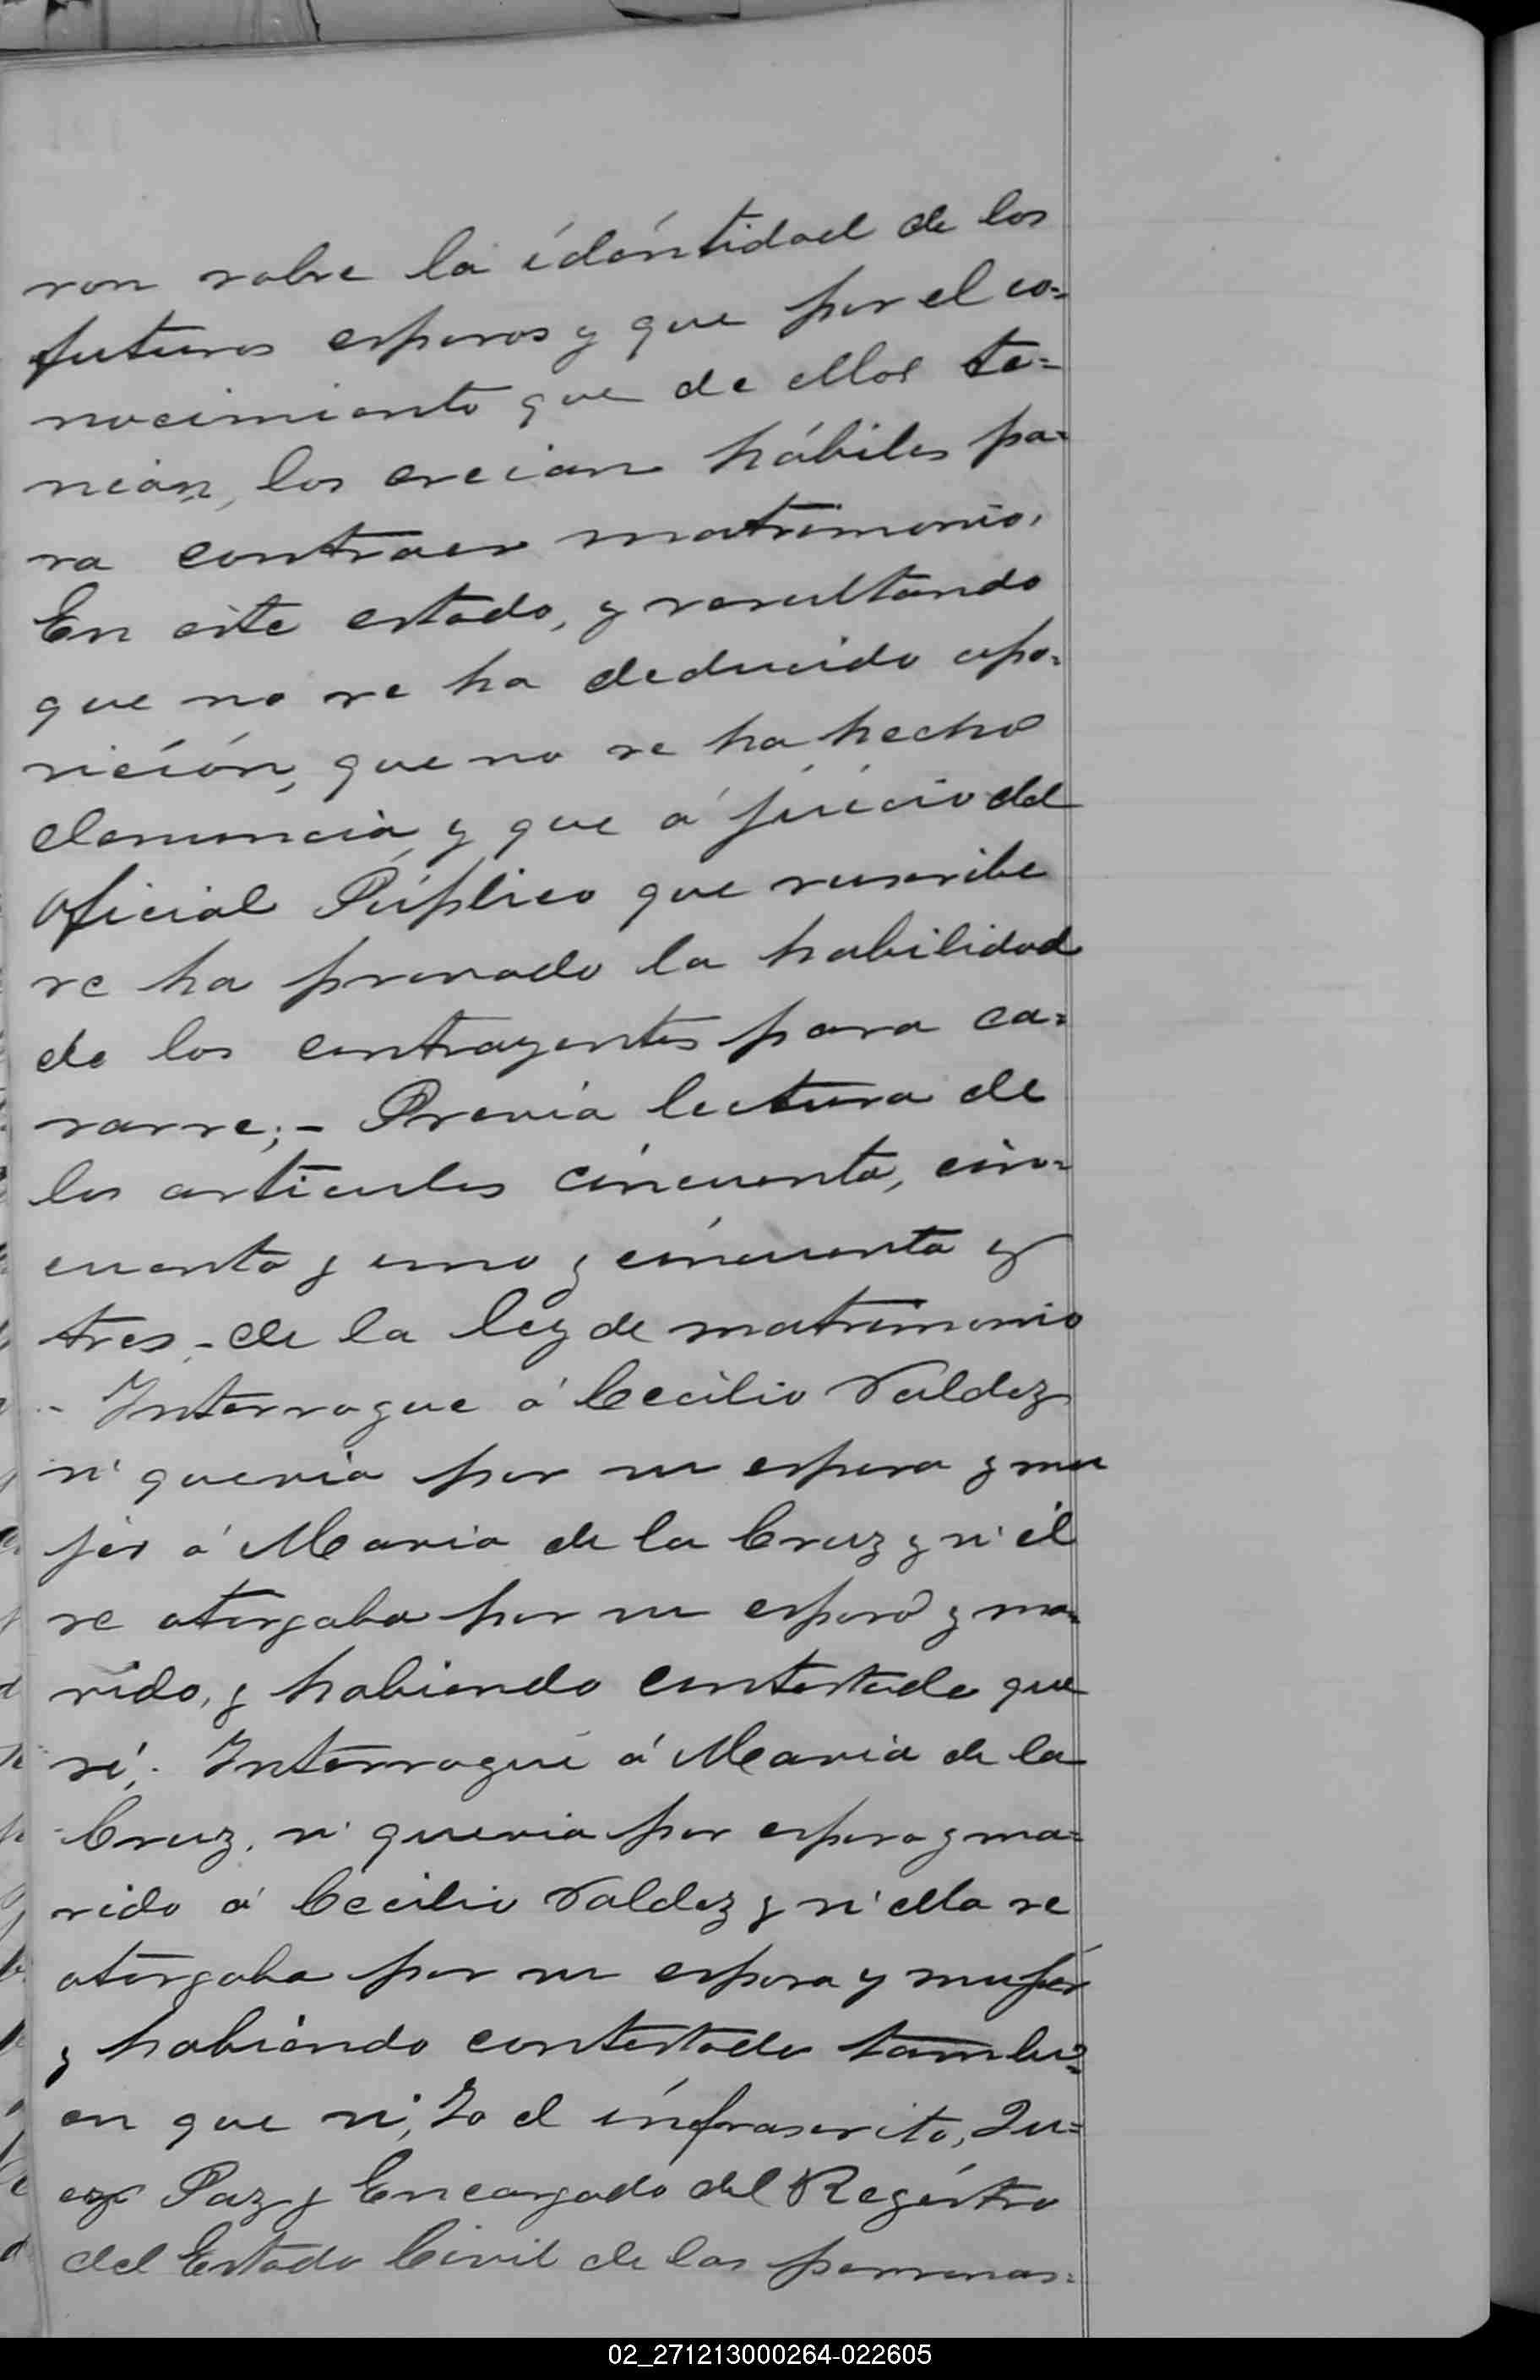 ron sobre la idéntidad de los
futuros esposos y que por el co=
nocimiento que de ellos te=
nian, los creian hábiles pa=
ra contraer matrimonio.
En este estado, y resultando
que no se ha deducido opo=
sición, que no se ha hecho
denuncia, y que á juicio del
oficial Púplico que suscribe
se ha provado la habilidad
de los contrayentes para ca=
sarse;- Previa lectura de
los articulos cincuenta, cin=
cuenta y uno y cincuenta y
tres,- de la ley de matrimonio
- Interrogue á Cecilio Valdez
si queria por su esposa y mu
jer á Maria de la Cruz y si él
se otorgaba por su esposo y ma=
rido, y habiendo contestado que
si;. Interrogué á Maria de la
Cruz, si queria por esposo y ma=
rido á Cecilio Valdez y si ella se
otorgaba por su esposa y mujer
y habiendo contestado tambi=
en que si, Yo el infrascrito, Ju=
ez Paz y Encargado del Registro
del Estado Civil de las personas=
02_271213000264-022605